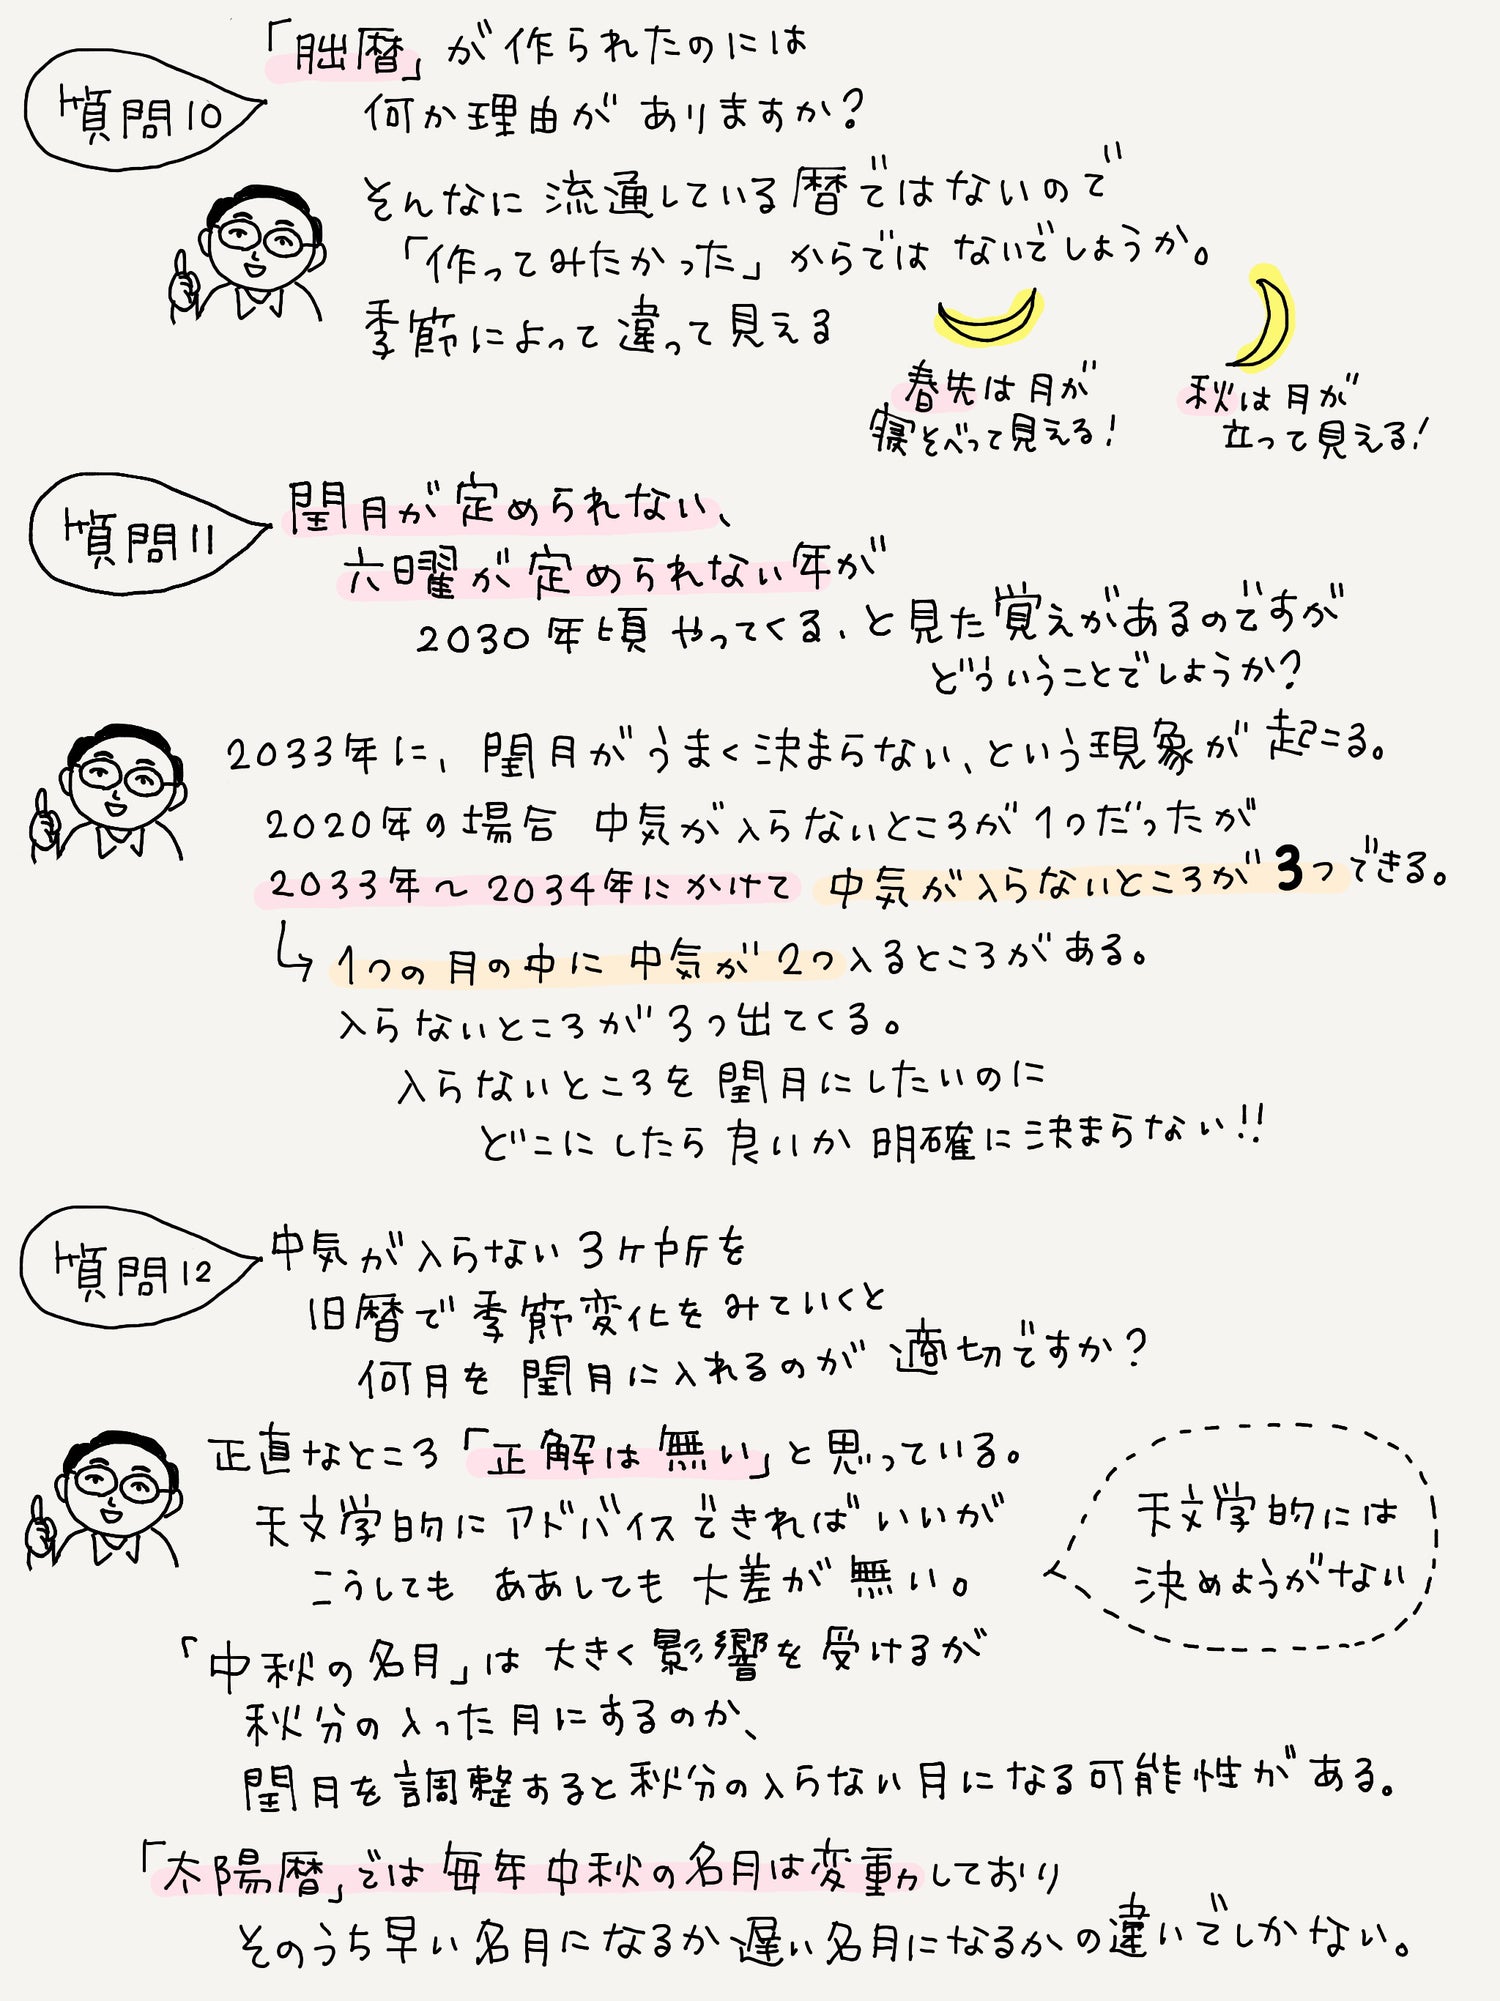 質問10
「朏暦」が作られたのには
何か理由がありますか？
そんなに流通している暦ではないので
「作ってみたかった」からではないでしょうか。
季節によって違って見える
春先は月が
寝そべって見える！
秋は月が
立って見える！
質問11
閏月が定められない、
六曜が定められない年が
2030年頃やってくる、と見た覚えがあるのですが
どういうことでしょうか？
2033年に、閏月がうまく決まらない、という現象が起こる。
2020年の場合 中気が入らないところが1つだったが
2033年～2034年にかけて 中気が入らないところが3つできる。
1つの月の中に中気が2つ入るところがある。
入らないところが3つ出てくる。
入らないところを閏月にしたいのに
どこにしたら良いか明確に決まらない!!
質問12
中気が入らない3ヶ所を
旧暦で季節変化をみていくと
何月を閏月に入れるのが適切ですか？
正直なところ「正解は無い」と思っている。
天文学的にアドバイスできればいいが
こうしても ああしても 大差が無い。
天文学的には
決めようがない
「中秋の名月」は大きく影響を受けるが
秋分の入った月にするのか、
閏月を調整すると秋分の入らない月になる可能性がある。
「太陽暦」では毎年中秋の名月は変動しており
そのうち早い名月になるか遅い名月になるかの違いでしかない。